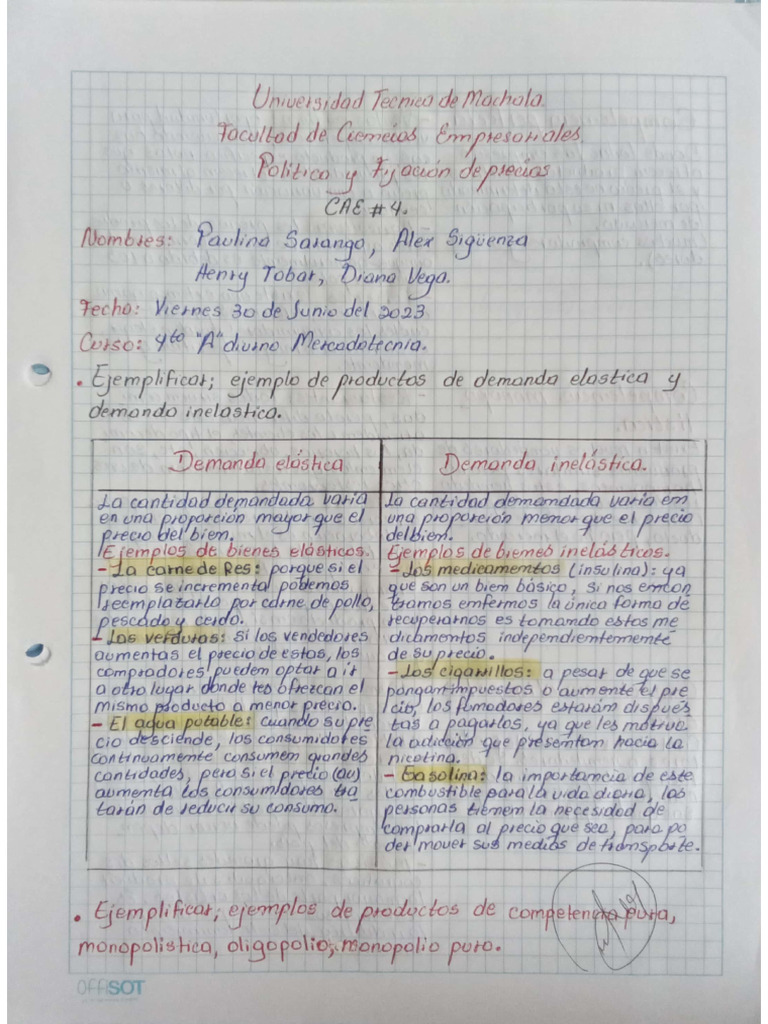 Universidad Tecnica de Machala.
Facultad de Ciencias Empresariales.
Politica y Fijación de precios
CAE # 4.
Nombres: Paulina Sarango, Alex Sigüenza
Henry Tobar, Diana Vega.
Fecha: Viernes 30 de Junio del 2023
Curso: 4to "A" diurno Mercadotecnia.
• Ejemplificar; ejemplo de productos de demanda elastica y
demanda inelastica.
Demanda elástica
La cantidad demandada varia
en una proporción mayor que el
precio del bien.
Ejemplos de bienes elásticos.
- La carne de Res: porque si el
precio se incrementa podemos
reemplazarla por carne de pollo,
pescado y cerdo.
- Las verduras: si los vendedores
aumentas el precio de estas, los
compradores pueden optar a ir
a otro lugar donde les ofrezcan el
mismo producto a menor precio.
- El agua potable: cuando su pre
cio desciende, los consumidores
continuamente consumen grandes
cantidades, pero si el precio
aumenta los consumidores tra
tarán de reducir su consumo.
Demanda inelástica.
La cantidad demandada varia en
una proporción menor que el precio
del bien.
Ejemplos de bienes inelásticos.
- Los medicamentos (insulina): ya
que son un bien básico, si nos encon
tramos enfermos la única forma de
recuperarnos es tomando estos me
dicamentos independientemente
de su precio.
- Los cigarrillos: a pesar de que se
pongan impuestos o aumente el pre
cio, los fumadores estarán dispues
tas a pagarlos, ya que les motiva
la adicción que presentan hacia la
nicotina.
- Gasolina: la importancia de este
combustible para la vida diaria, las
personas tienen la necesidad de
comprarla al precio que sea, para po
der mover sus medios de transporte.
• Ejemplificar; ejemplos de productos de competencia pura,
monopolistica, oligopolio, monopolio puro.
OFFISOT